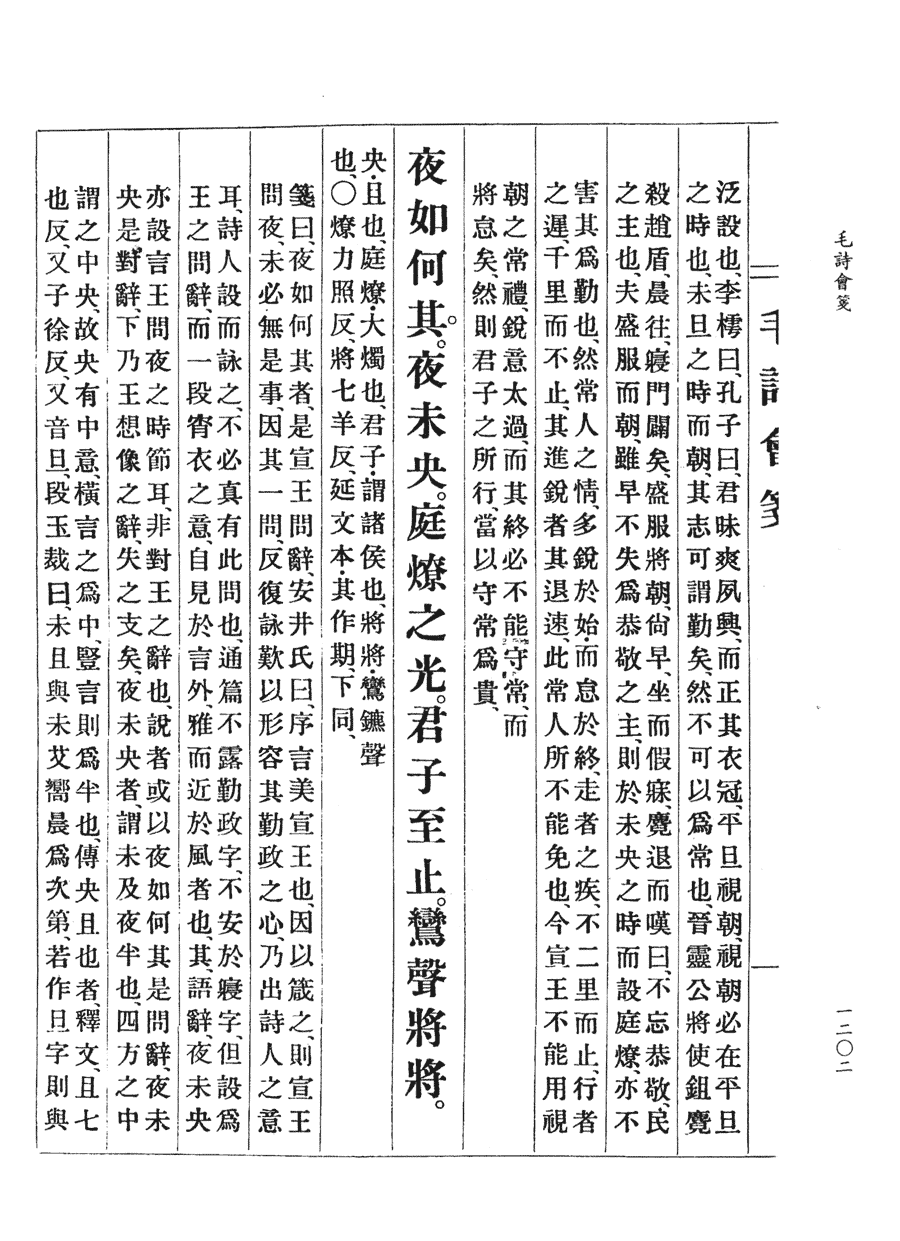 毛詩會箋
一二〇二
毛詩會箋
泛設也、李樗曰、孔子曰、君昧爽夙興、而正其衣冠、平旦視朝、視朝必在平旦
之時也、未旦之時而朝、其志可謂勤矣、然不可以爲常也、晉靈公將使鉏麑
殺趙盾、晨往、寢門闢矣、盛服將朝、尙早、坐而假寐、麑退而嘆曰、不忘恭敬、民
之主也、夫盛服而朝、雖早不失爲恭敬之主、則於未央之時而設庭燎、亦不
害其爲勤也、然常人之情、多銳於始・而怠於終、走者之疾、不二里而止、行者
之遲、千里而不止、其進銳者其退速、此常人所不能免也、今宣王不能用視
朝之常禮、銳意太過、而其終必不能守常、而
將怠矣、然則君子之所行、當以守常爲貴、
夜如何其。夜未央。庭燎之光。君子至止。鸞聲將將。
央・且也、庭燎・大燭也、君子・謂諸侯也、將將・鸞鑣聲
也、〇燎力照反、將七羊反、延文本・其作期、下同、
箋曰、夜如何其者、是宣王問辭、安井氏曰、序言美宣王也、因以箴之、則宣王
問夜、未必無是事、因其一問、反復詠歎以形容其勤政之心、乃出詩人之意
耳、詩人設而詠之、不必真有此問也、通篇不露勤政字、不安於寢字、但設爲
王之問辭、而一段宵衣之意、自見於言外、雅而近於風者也、其、語辭、夜未央
亦設言王問夜之時節耳、非對王之辭也、說者或以夜如何其是問辭、夜未
央是對辭、下乃王想像之辭、失之支矣、夜未央者、謂未及夜半也、四方之中
謂之中央、故央有中意、橫言之爲中、豎言則爲半也、傳央且也者、釋文、且七
也反、又子徐反、又音旦、段玉裁曰、未且與未艾嚮晨爲次第、若作旦字則與